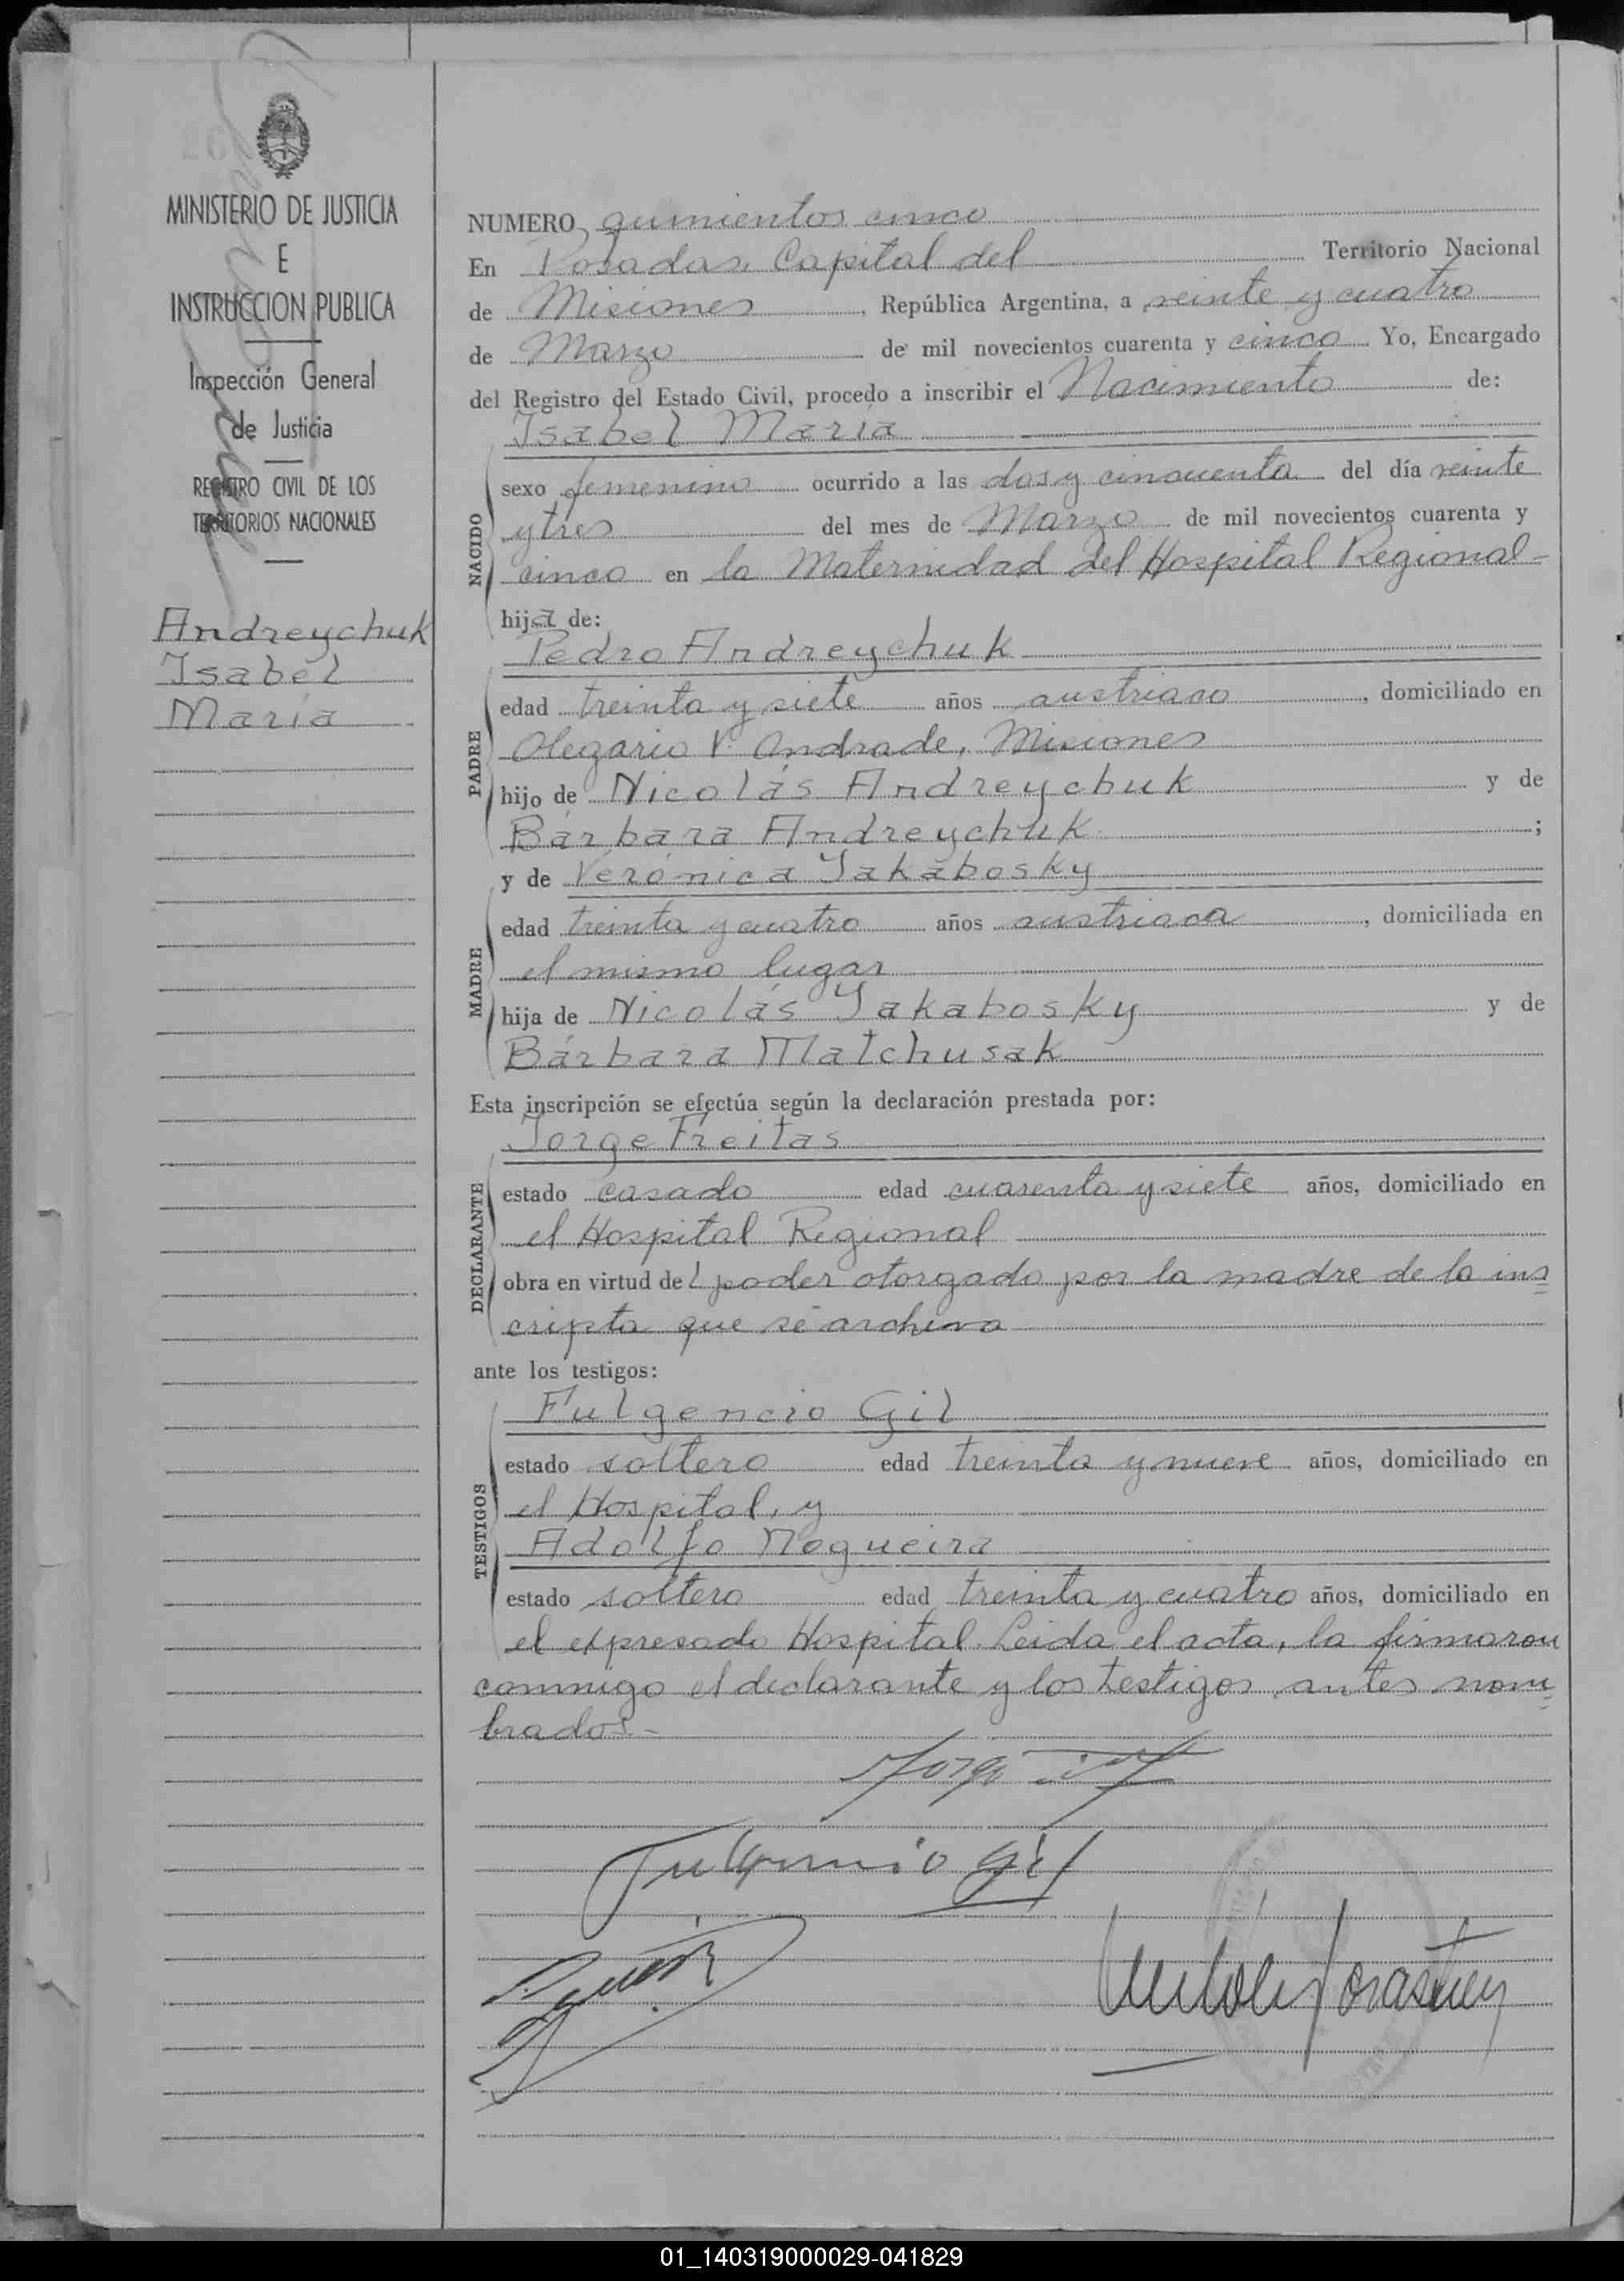 MINISTERIO DE JUSTICIA
E
INSTRUCCION PUBLICA
Inspección General
de Justicia
REGISTRO CIVIL DE LOS
TERRITORIOS NACIONALES
Andreychuk
Isabel
María
NUMERO quinientos cinco
En Posadas, Capital del Territorio Nacional
de Misiones, República Argentina, a veinte y cuatro
de Marzo de mil novecientos cuarenta y cinco Yo, Encargado
del Registro del Estado Civil, procedo a inscribir el Nacimiento de:
Isabel María
NACIDO
sexo femenino ocurrido a las dos y cincuenta del día veinte
y tres del mes de Marzo de mil novecientos cuarenta y
cinco en la Maternidad del Hospital Regional-
hija de:
Pedro Andreychuk
PADRE
edad treinta y siete años austriaco, domiciliado en
Olegario V. Andrade, Misiones
hijo de Nicolás Andreychuk y de
Bárbara Andreychuk;
y de Verónica Yakabosky
MADRE
edad treinta y cuatro años austriaca, domiciliada en
el mismo lugar
hija de Nicolás Yakabosky y de
Bárbara Matchusak
Esta inscripción se efectúa según la declaración prestada por:
Jorge Freitas
DECLARANTE
estado casado edad cuarenta y siete años, domiciliado en
el Hospital Regional
obra en virtud del poder otorgado por la madre de la ins
cripta que se archiva
ante los testigos:
Fulgencio Gil
TESTIGOS
estado soltero edad treinta y nueve años, domiciliado en
el Hospital, y
Adolfo Nogueira
estado soltero edad treinta y cuatro años, domiciliado en
el expresado Hospital. Leida el acta, la firmaron
conmigo el declarante y los testigos antes nom
brados.-
Jorge
Fulgencio Gil
01_140319000029-041829